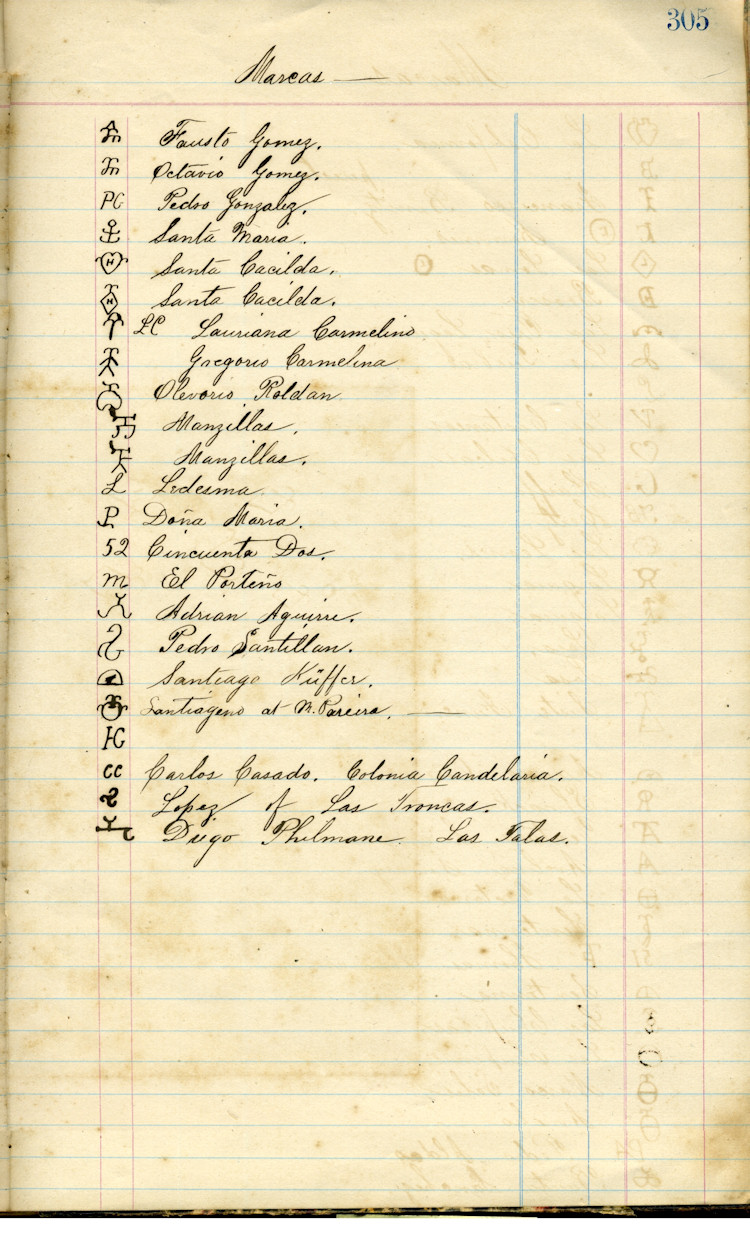 305
Marcas —
Fausto Gomez.
Octavio Gomez.
PG Pedro Gonzalez.
Santa Maria.
Santa Cacilda.
Santa Cacilda.
LC Lauriana Carmelino
Gregorio Carmelina
Olevorio Roldan
Manzillas.
Manzillas.
L Ledesma
P Doña Maria.
52 Cincuenta Dos.
m El Porteño
Adrian Aguirre.
Pedro Santillan.
Santiago Küffer.
Santiageno at M. Pareira. —
HG
CC Carlos Casado. Colonia Candelaria.
Lopez of Las Troncas.
Diego Philmane. Las Talas.